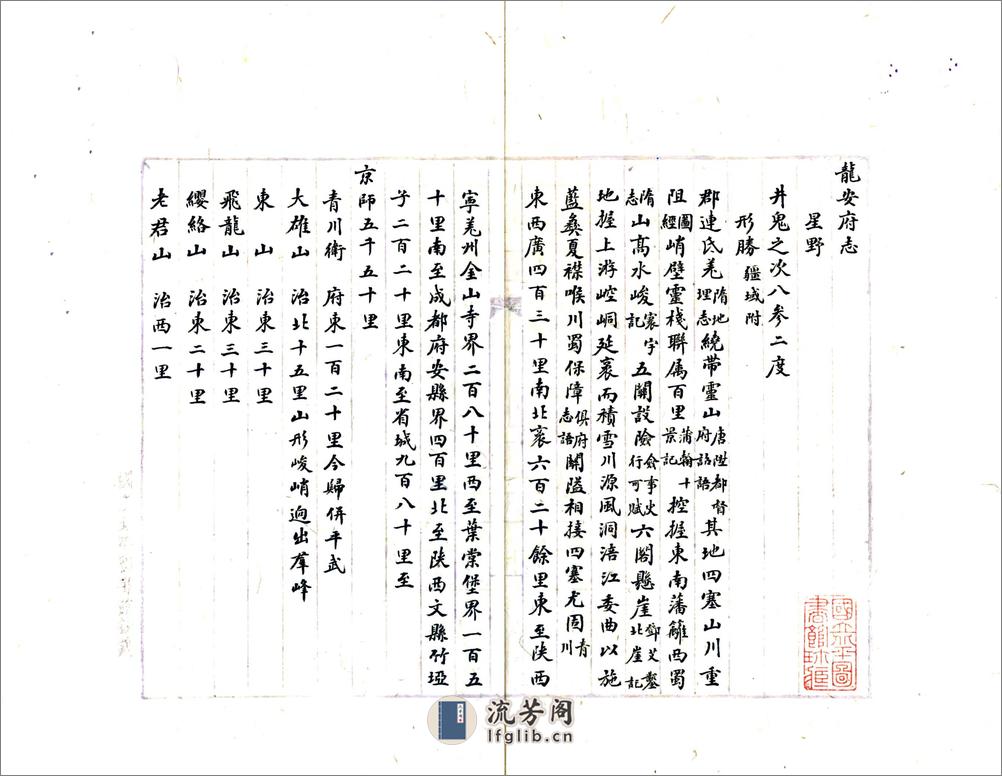 龍安府志
星野
井鬼之次八參二度
形勝 疆域附
郡連氐羌 隋地理志 繞帶靈山 唐陞都督府詔語 其地四塞山川重
阻 圖經 峭壁靈棧聯属百里 蒲翰十景記 控握東南藩籬西蜀
隋志 山高水峻 寰宇記 五關設險 僉事史行可賦 六閣懸崖 鄧艾鑿北崖記
地握上游崆峒延袤而積雪川源風洞涪江委曲以施
藍彝夏襟喉川蜀保障 俱府志語 關隘相接四塞尤固 青川
東西廣四百三十里南北袤六百二十餘里東至陕西
寧羌州金山寺界二百八十里西至葉棠堡界一百五
十里南至成都府安縣界四百里北至陕西文縣竹埡
子二百二十里東南至省城九百八十里至
京師五千五十里
青川衛 府東一百二十里今歸併平武
大雄山 治北十五里山形峻峭逈出羣峰
東山 治東三十里
飛龍山 治東三十里
纓絡山 治東二十里
老君山 治西一里
流芳阁
lfglib.cn